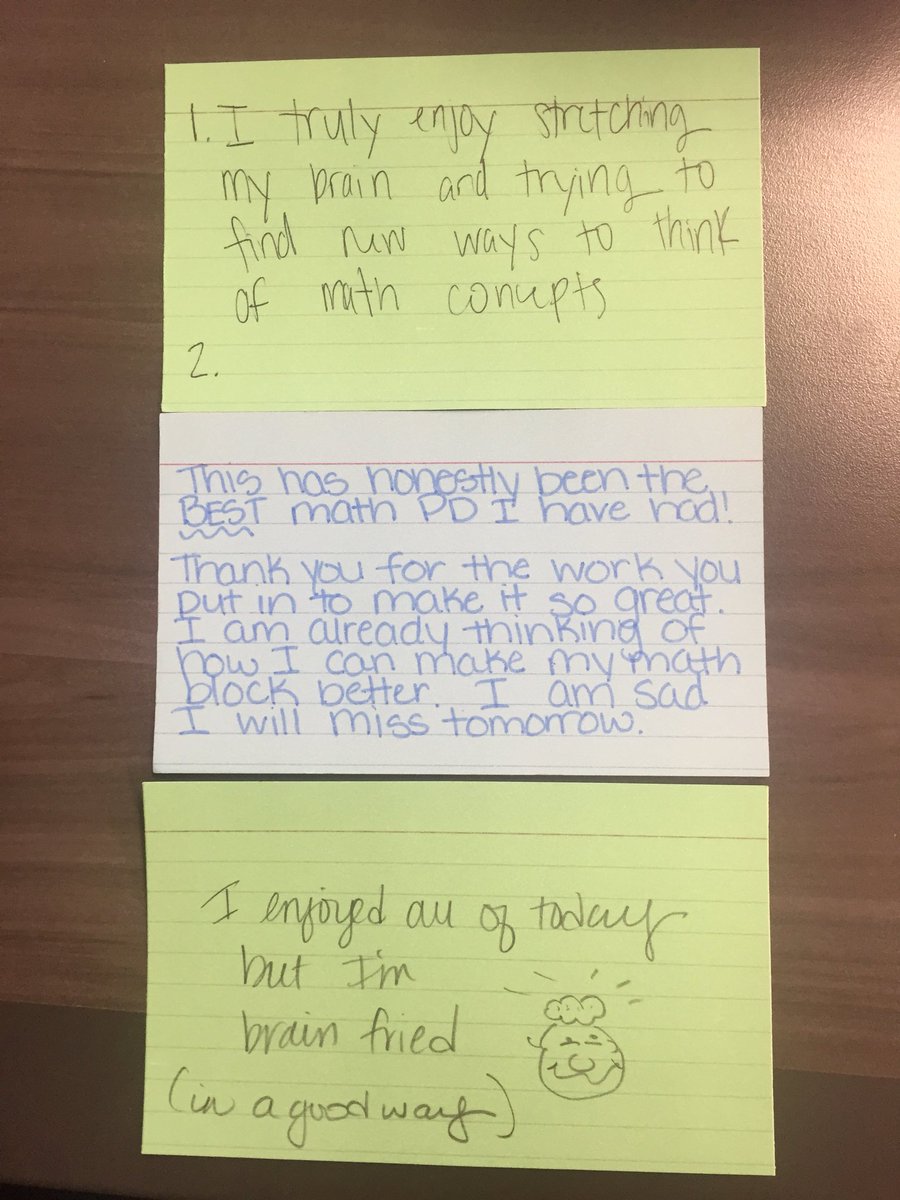 1. I truly enjoy stretching
my brain and trying to
find new ways to think
of math concepts
2.
This has honestly been the
BEST math PD I have had!
Thank you for the work you
put in to make it so great.
I am already thinking of
how I can make my math
block better. I am sad
I will miss tomorrow.
I enjoyed all of today
but I'm
brain fried
(in a good way)